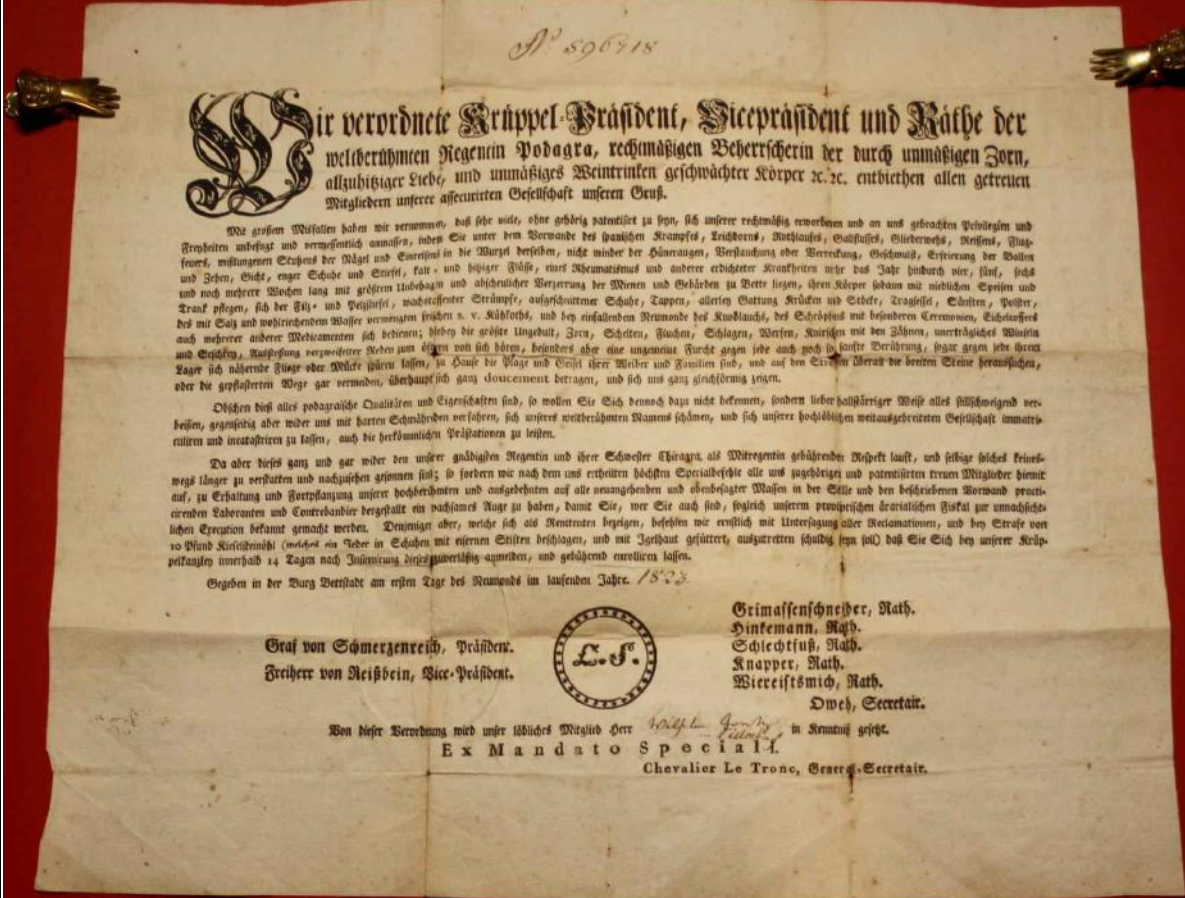 Nº 896718
Wir verordnete Krüppel-Präsident, Vicepräsident und Räthe der
weltberühmten Regentin Podagra, rechtmäßigen Beherrscherin der durch unmäßigen Zorn,
allzuhitziger Liebe, und unmäßiges Weintrinken geschwächter Körper ꝛc. ꝛc. entbiethen allen getreuen
Mitgliedern unserer assecurirten Gesellschaft unseren Gruß.
Mit großem Misfallen haben wir vernommen, daß sehr viele, ohne gehörig patentisirt zu seyn, sich unserer rechtmäßig erworbenen und an uns gebrachten Privilegien und
Freyheiten unbefugt und vermessentlich anmassen, indem Sie unter dem Vorwande des spanischen Krampfes, Leichdorns, Rothlaufes, Gallflusses, Gliederwehs, Reissens, Flug-
feuers, mißlungenen Stutzens der Nägel und Einreissens in die Wurzel derselben, nicht minder der Hüneraugen, Verstauchung oder Verrenkung, Geschwulst, Erfrierung der Ballen
und Zehen, Gicht, enger Schuhe und Stiefel, kalt- und hitziger Flüsse, eines Rheumatismus und anderer erdichteter Krankheiten mehr das Jahr hindurch vier, fünf, sechs
und noch mehrere Wochen lang mit größtem Unbehagen und abscheulicher Verzerrung der Mienen und Gebärden zu Bette liegen, ihren Körper sodann mit niedlichen Speisen und
Trank pflegen, sich der Filz- und Pelzstiefel, wachstaffenter Strümpfe, aufgeschnittener Schuhe, Tappen, allerley Gattung Krücken und Stöcke, Tragsessel, Sänften, Polster,
des mit Salz und wohlriechendem Wasser vermengten frischen s. v. Kühkoths, und bey einfallendem Neumonde des Knoblauchs, des Schröpfens mit besonderen Ceremonien, Eichelkoffers
auch mehrerer anderer Medicamenten sich bedienen; hiebey die größte Ungedult, Zorn, Schelten, Fluchen, Schlagen, Werfen, Knirschen mit den Zähnen, unerträgliches Winseln
und Geschrey, Ausstoßung verzweifelter Reden zum öftern von sich hören, besonders aber eine ungemeine Furcht gegen jede auch noch so sanfte Berührung, sogar gegen jede ihrem
Lager sich nähernde Fliege oder Mücke spüren lassen, zu Hause die Plage und Geisel ihrer Weiber und Familien sind, und auf den Straßen überall die breiten Steine heraussuchen,
oder die gepflasterten Wege gar vermeiden, überhaupt sich ganz doucement betragen, und sich uns ganz gleichförmig zeigen.
Obschon dieß alles podagraische Qualitäten und Eigenschaften sind, so wollen Sie Sich dennoch dazu nicht bekennen, sondern lieber hallstärriger Weise alles stillschweigend ver-
beißen, gegenseitig aber wider uns mit harten Schmähreden verfahren, sich unseres weltberühmten Namens schämen, und sich unserer hochlöblichen weitausgebreiteten Gesellschaft immatri-
culiren und incatastriren zu lassen, auch die herkömmlichen Prästationen zu leisten.
Da aber dieses ganz und gar wider den unserer gnädigsten Regentin und ihrer Schwester Chiragra als Mitregentin gebührenden Respekt lauft, und selbige solches keines-
wegs länger zu verstatten und nachzusehen gesonnen sind; so fordern wir nach dem uns ertheilten höchsten Specialbefehle alle uns zugehörigen und patentisirten treuen Mitglieder hiemit
auf, zu Erhaltung und Fortpflanzung unserer hochberühmten und ausgedehnten auf alle neuangehenden und obenbesagter Massen in der Stille und den beschriebenen Vorwand practi-
cirenden Laboranten und Contrebandier dergestallt ein wachsames Auge zu haben, damit Sie, wer Sie auch sind, sogleich unserem provisorischen ärarialischen Fiskal zur unnachsicht-
lichen Execution bekannt gemacht werden. Denjenigen aber, welche sich als Renitenten bezeigen, befehlen wir ernstlich mit Untersagung aller Reclamationen, und bey Strafe von
10 Pfund Kieselsteinöhl (welches ein Jeder in Schuhen mit eisernen Stiften beschlagen, und mit Igelhaut gefüttert, auszutretten schuldig seyn soll) daß Sie Sich bey unserer Krüp-
pelkanzley innerhalb 14 Tagen nach Insinuirung dieses zuverläßig anmelden, und gebührend enrolliren lassen.
Gegeben in der Burg Bettstadt am ersten Tage des Neumonds im laufenden Jahre. 1823
Graf von Schmerzenreich, Präsident.
Freiherr von Reißbein, Vice-Präsident.
L. S.
Grimassenschneider, Rath.
Hinkemann, Rath.
Schlechtfuß, Rath.
Knapper, Rath.
Wiereistsmich, Rath.
Oweh, Secretair.
Von dieser Verordnung wird unser löbliches Mitglied Herr in Kenntniß gesetzt.
Ex Mandato Speciali.
Chevalier Le Tronc, General-Secretair.